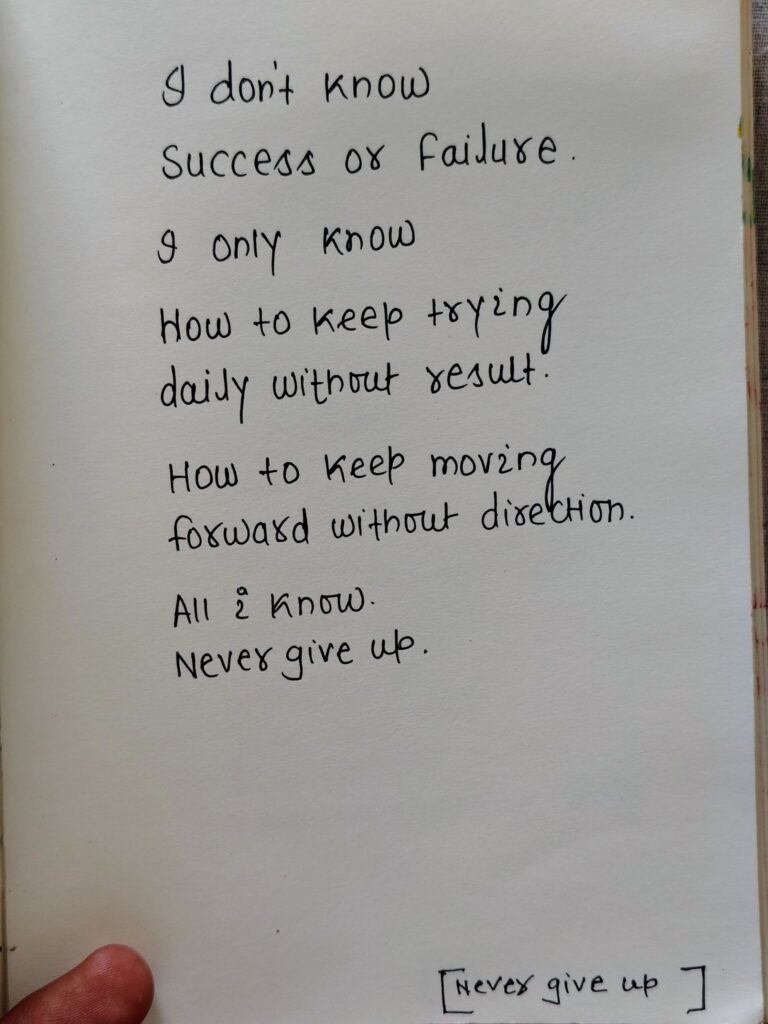 I don't know
Success or Failure.
I only know
How to keep trying
daily without result.
How to keep moving
forward without direction.
All i know.
Never give up.
[Never give up]